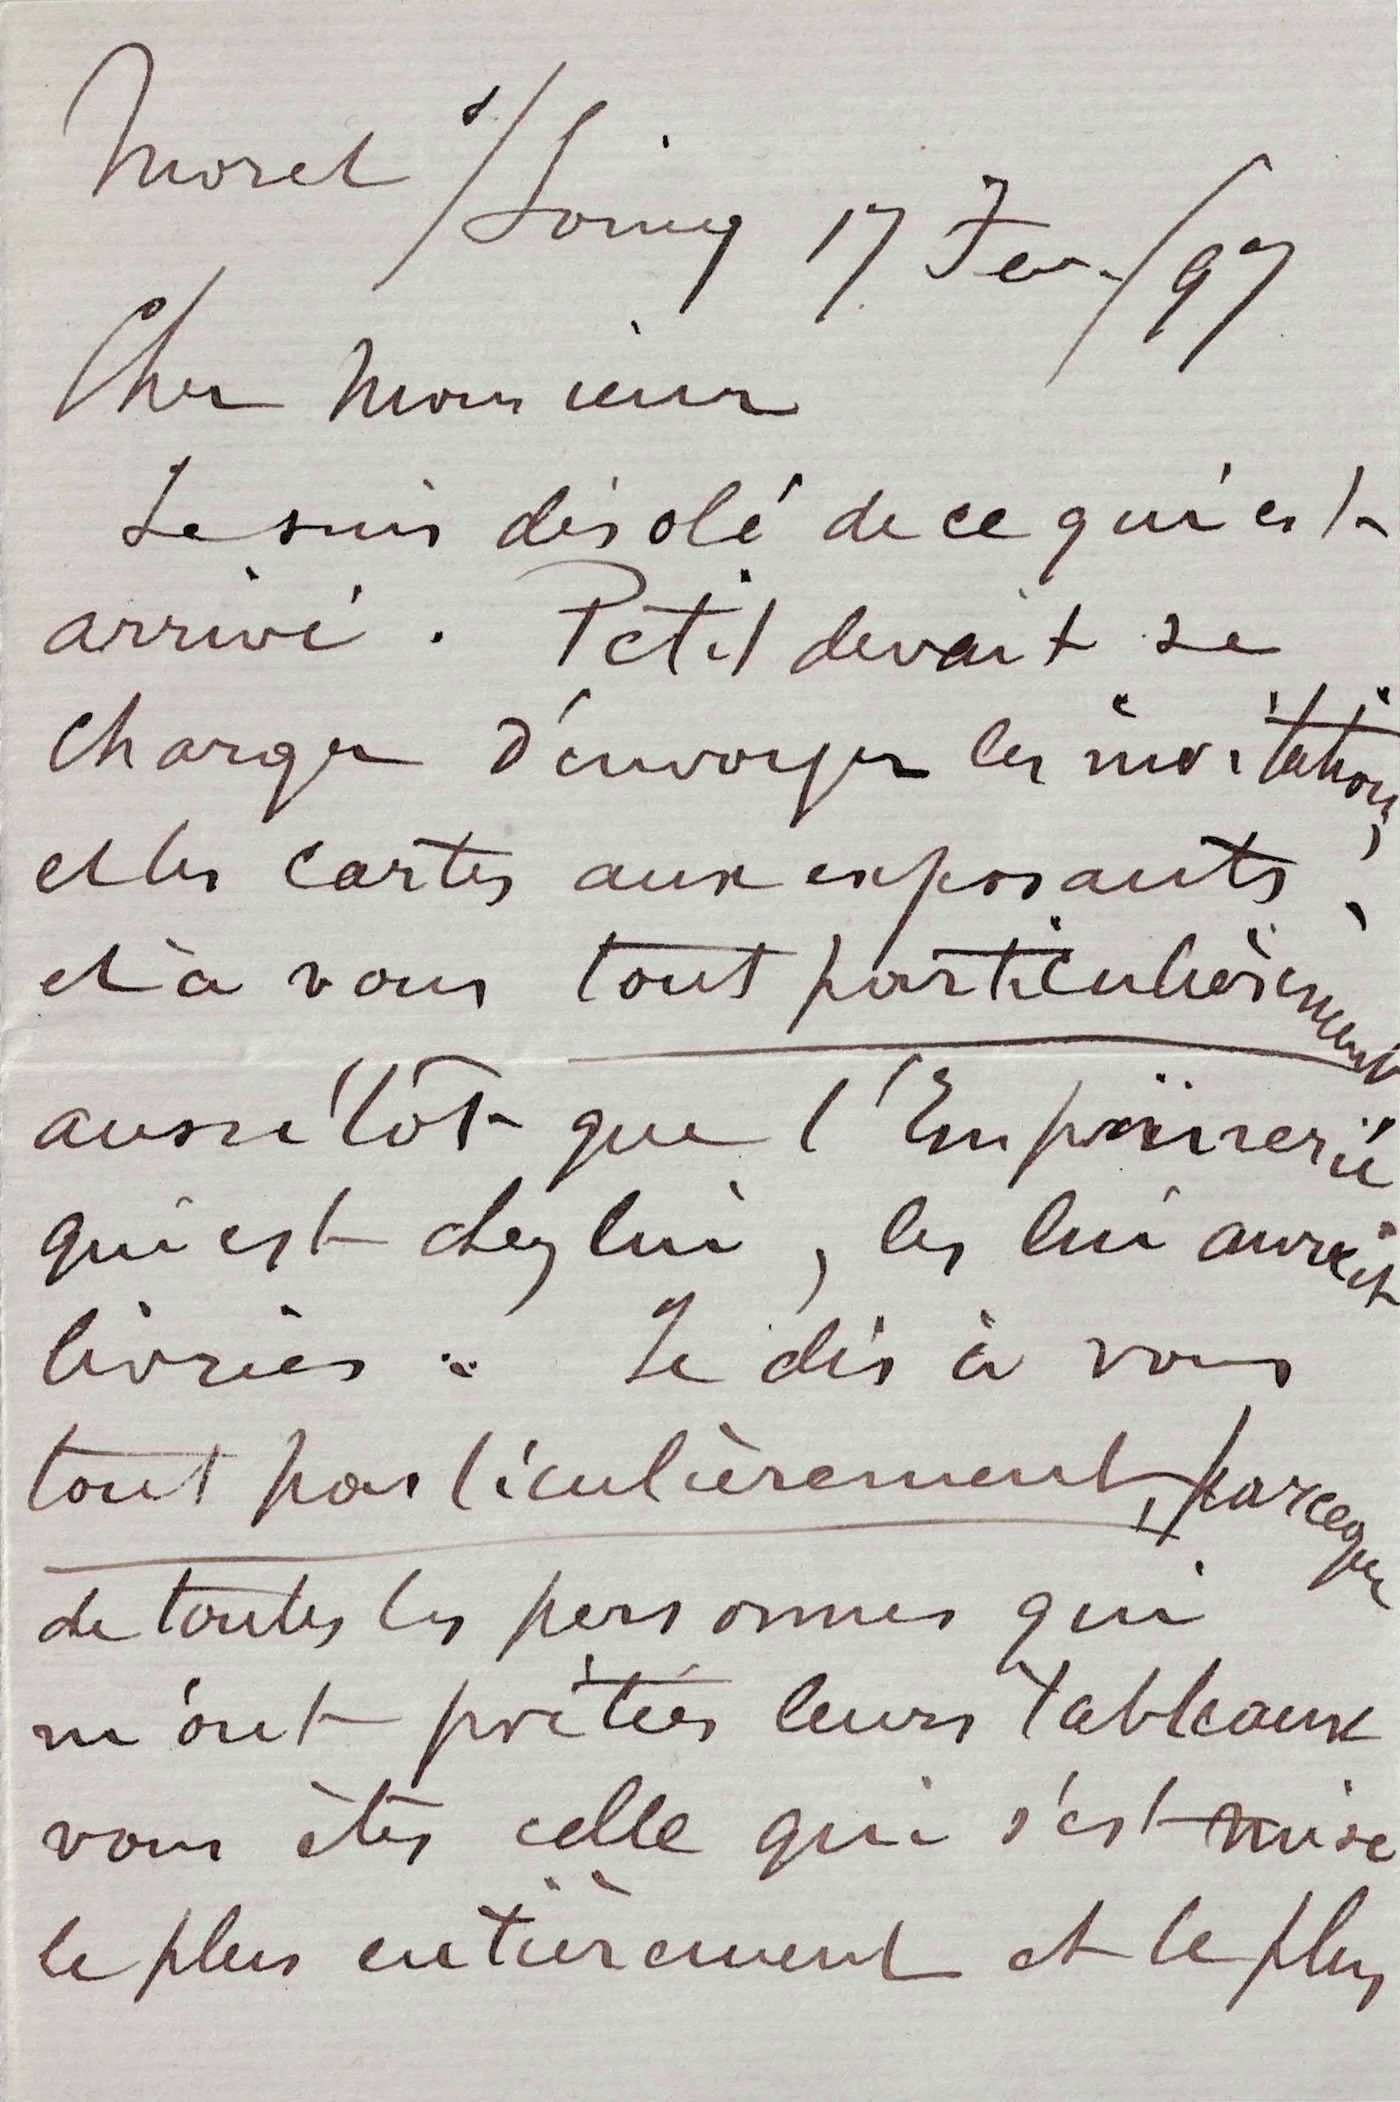 Moret s/Loing 17 Fev./97
Cher Monsieur
Je suis désolé de ce qui est
arrivé. Petit devait se
charger d'envoyer les invitations,
et les cartes aux exposants,
et à vous tout particulièrement
aussitôt que l'Imprimerie
qui est chez lui, les lui aurait
livrées. Je dis à vous
tout particulièrement, parceque
de toutes les personnes qui
m'ont prêtées leurs tableaux
vous êtes celle qui s'est mise
le plus entièrement et le plus